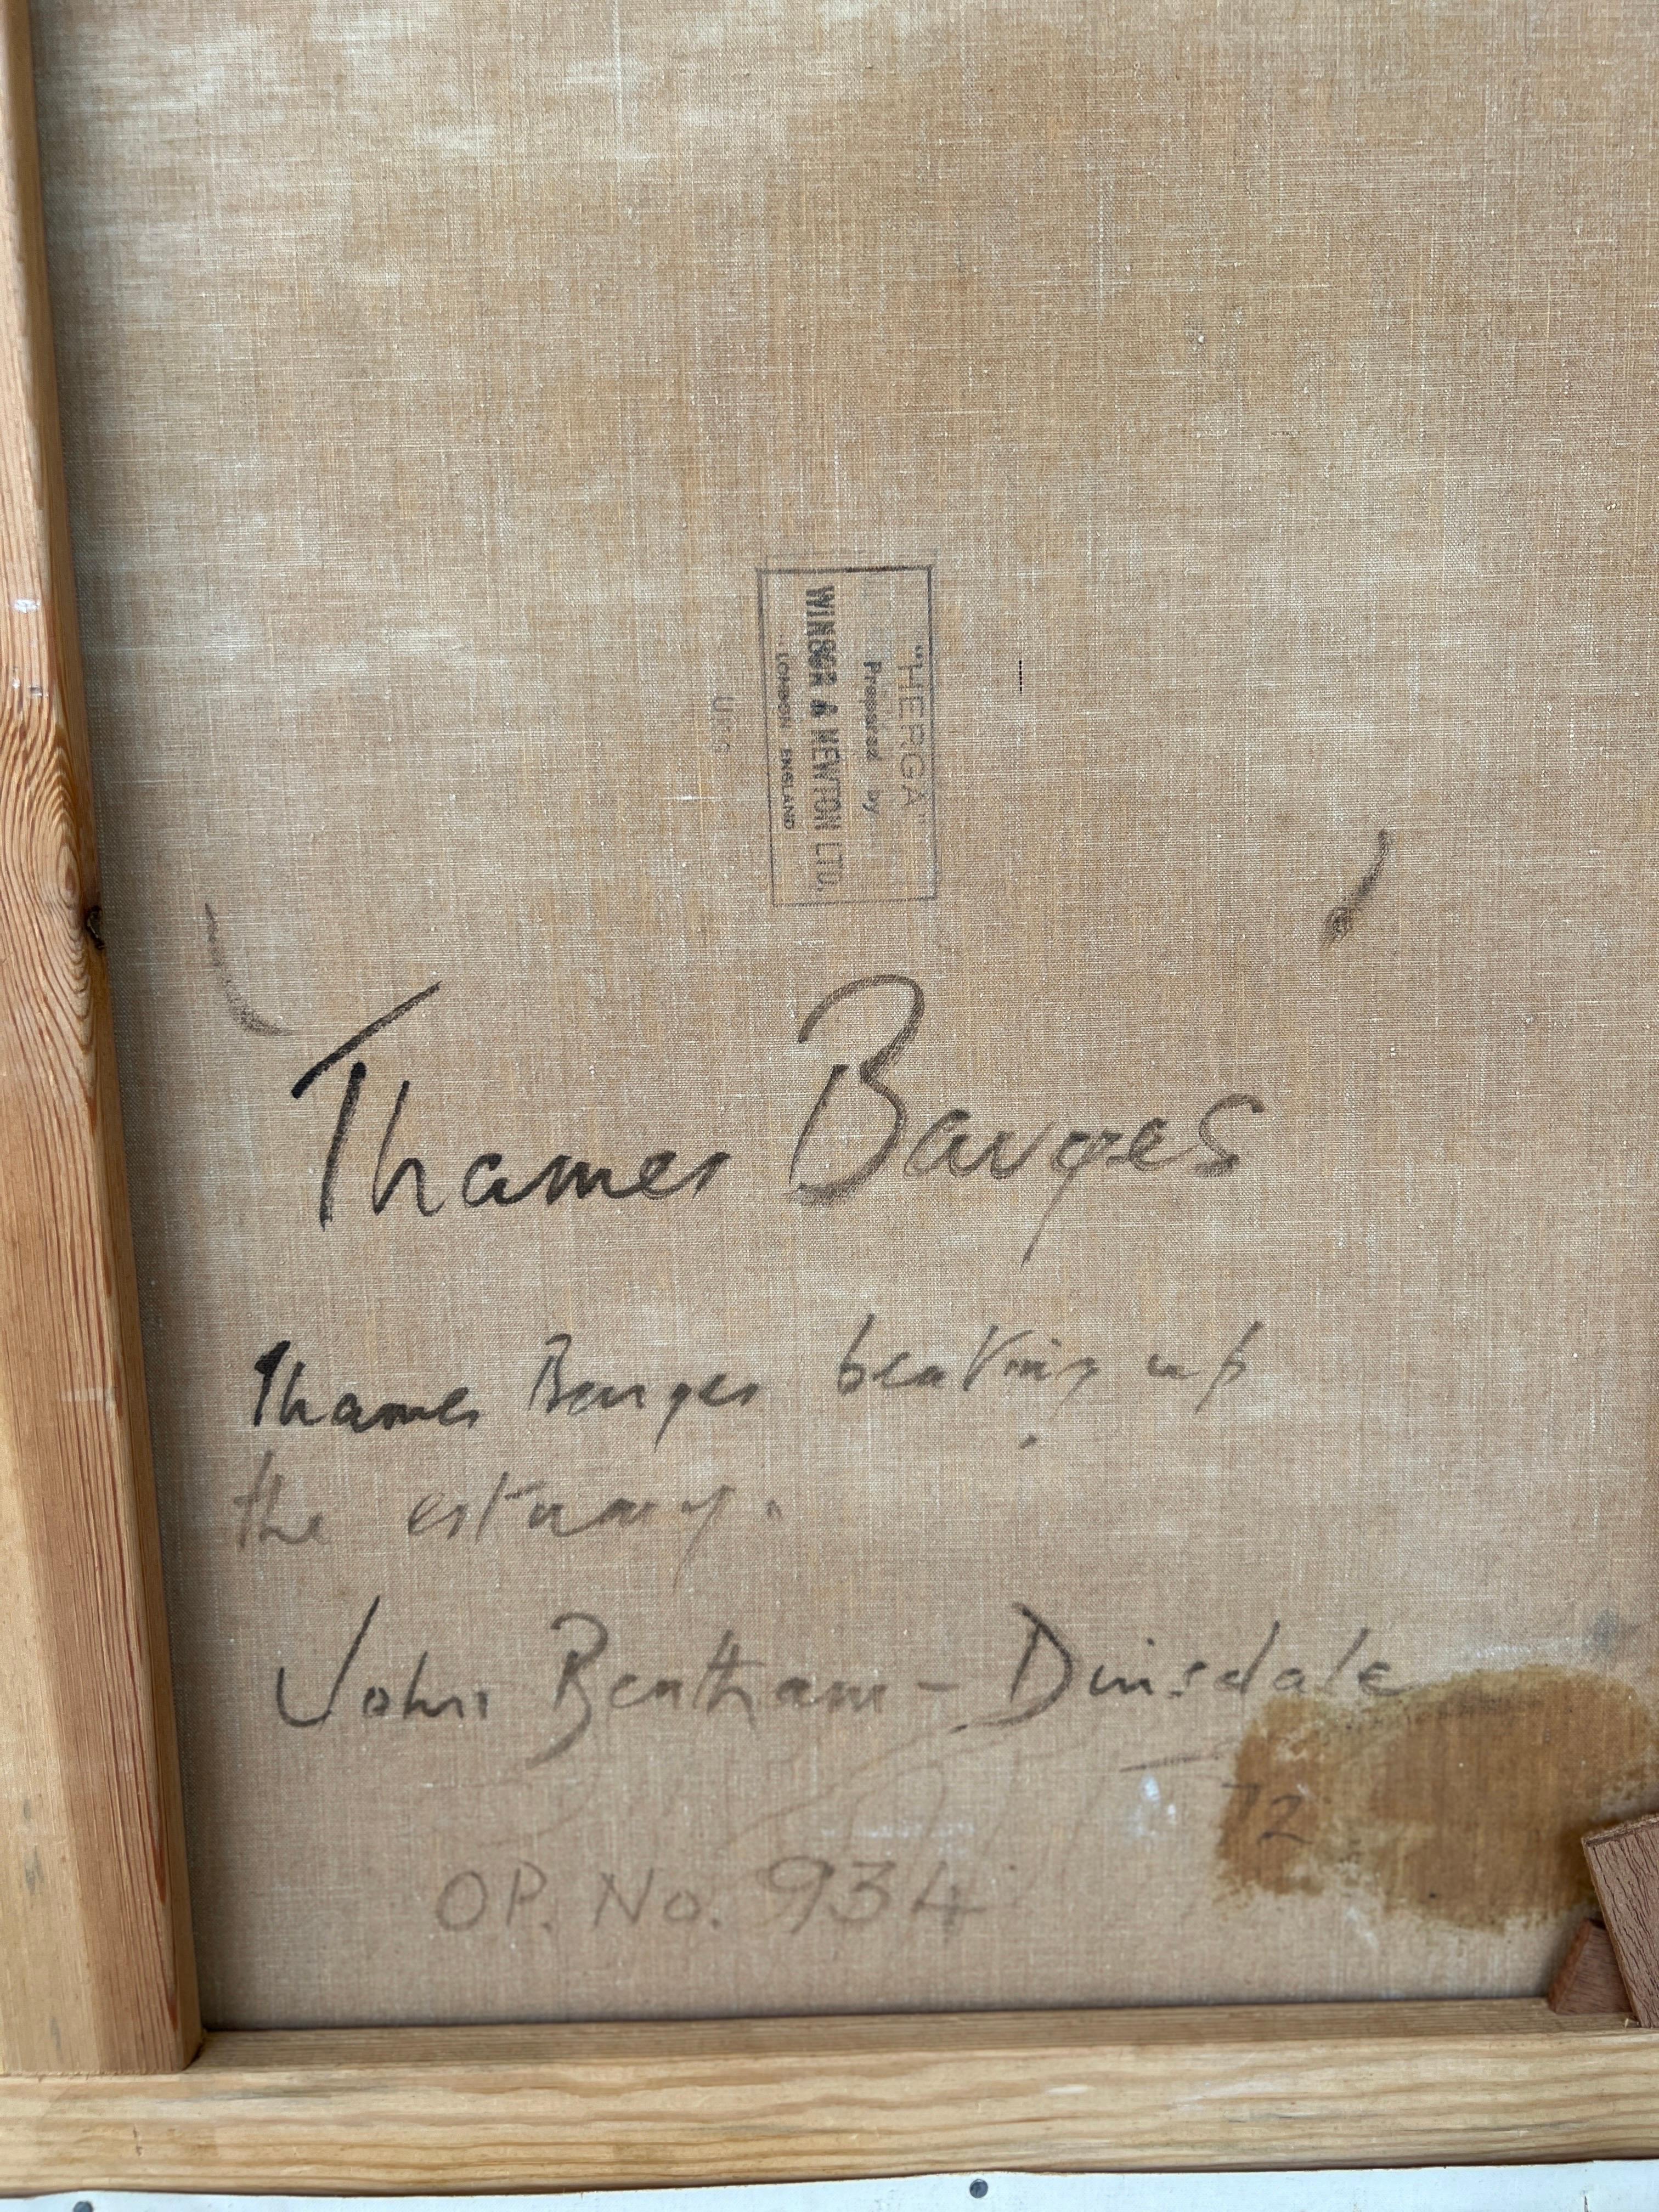 "HERGA"
Prepared by
WINSOR & NEWTON LTD.
LONDON ENGLAND
Thames Barges
Thames Barges beating up
the estuary.
John Bentham-Dinsdale
72
OP. No. 934